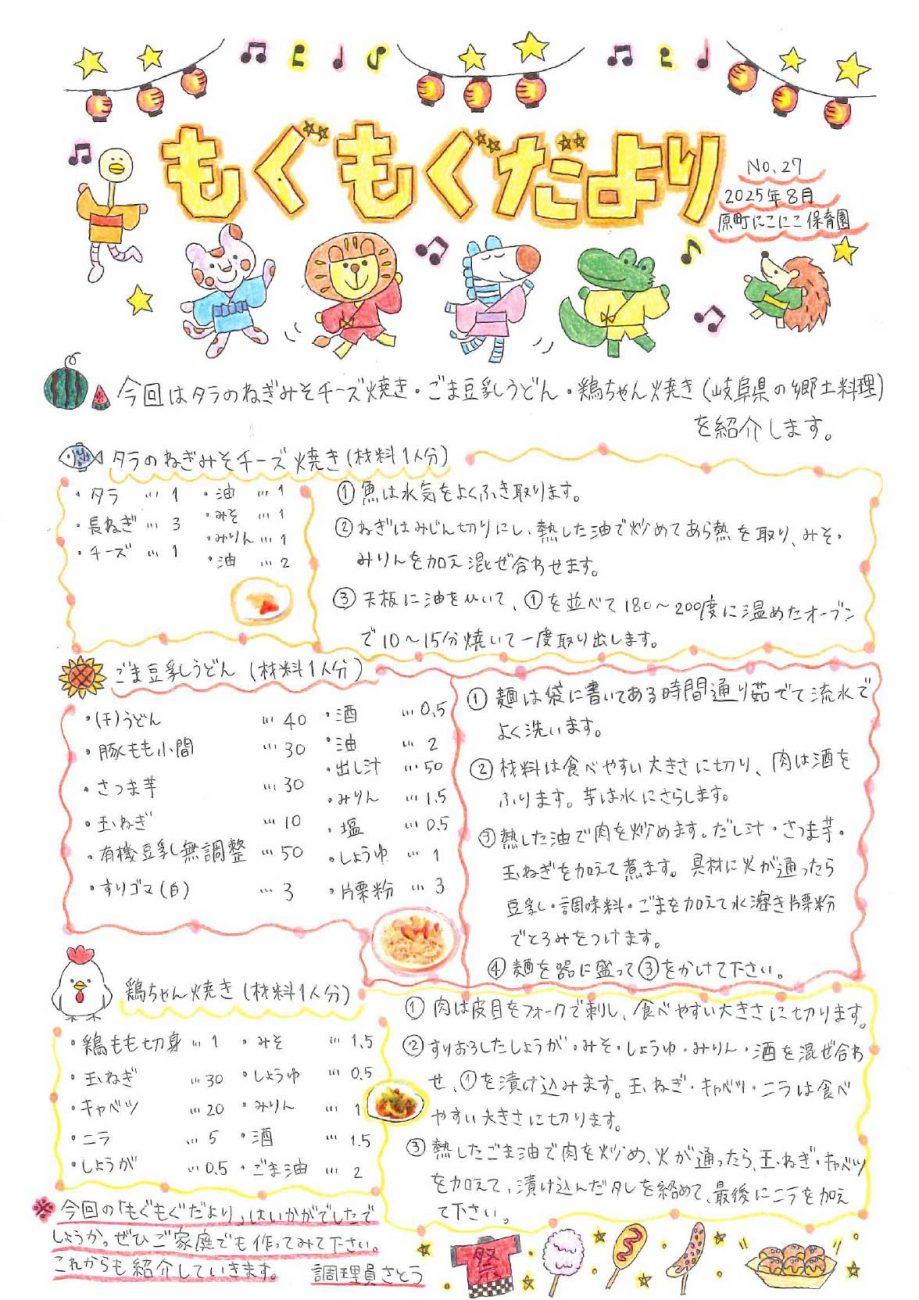 もぐもぐだより
No.27
2025年8月
原町にこにこ保育園
今回はタラのねぎみそチーズ焼き・ごま豆乳うどん・鶏ちゃん焼き(岐阜県の郷土料理)
を紹介します。
タラのねぎみそチーズ焼き(材料1人分)
・タラ … 1
・長ねぎ … 3
・チーズ … 1
・油 … 1
・みそ … 1
・みりん … 1
・油 … 2
①魚は水気をよくふき取ります。
②ねぎはみじん切りにし、熱した油で炒めてあら熱を取り、みそ・
みりんを加え混ぜ合わせます。
③天板に油をひいて、①を並べて180~200度に温めたオーブン
で10~15分焼いて一度取り出します。
ごま豆乳うどん(材料1人分)
・(干)うどん … 40
・豚もも小間 … 30
・さつま芋 … 30
・玉ねぎ … 10
・有機豆乳無調整 … 50
・すりゴマ(白) … 3
・酒 … 0.5
・油 … 2
・出し汁 … 50
・みりん … 1.5
・塩 … 0.5
・しょうゆ … 1
・片栗粉 … 3
①麺は袋に書いてある時間通り茹でて流水で
よく洗います。
②材料は食べやすい大きさに切り、肉は酒を
ふります。芋は水にさらします。
③熱した油で肉を炒めます。だし汁・さつま芋・
玉ねぎを加えて煮ます。具材に火が通ったら
豆乳・調味料・ごまを加えて水溶き片栗粉
でとろみをつけます。
④麺を器に盛って③をかけて下さい。
鶏ちゃん焼き(材料1人分)
・鶏もも切身 … 1
・玉ねぎ … 30
・キャベツ … 20
・ニラ … 5
・しょうが … 0.5
・みそ … 1.5
・しょうゆ … 0.5
・みりん … 1
・酒 … 1.5
・ごま油 … 2
①肉は皮目をフォークで刺し、食べやすい大きさに切ります。
②すりおろしたしょうが・みそ・しょうゆ・みりん・酒を混ぜ合わ
せ、①を漬け込みます。玉ねぎ・キャベツ・ニラは食べ
やすい大きさに切ります。
③熱したごま油で肉を炒め、火が通ったら、玉ねぎ・キャベツ
を加えて、漬け込んだタレを絡めて、最後にニラを加え
て下さい。
※今回の「もぐもぐだより」はいかがでしたで
しょうか。ぜひご家庭でも作ってみて下さい。
これからも紹介していきます。 調理員さとう
祭